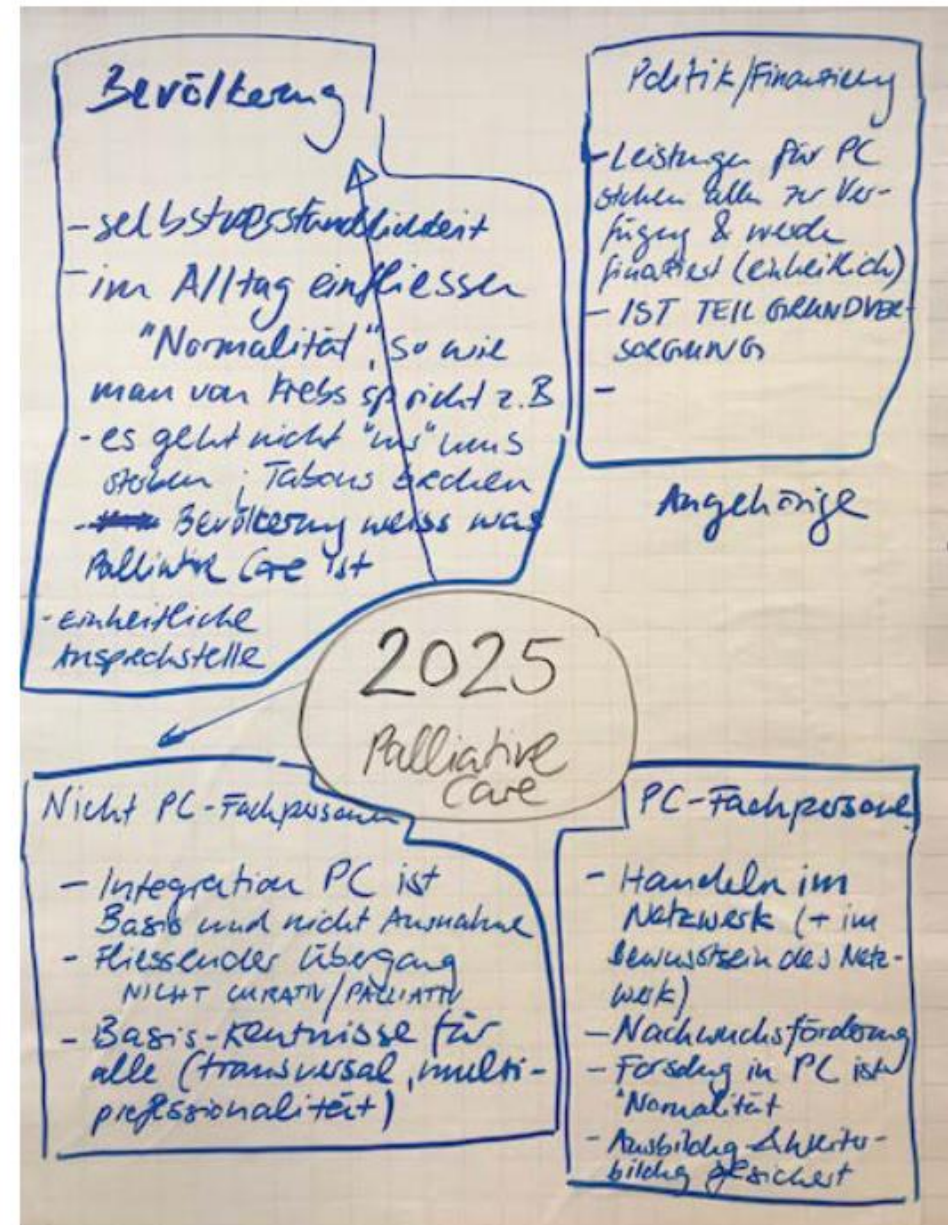 Bevölkerung
- selbstverständlichkeit
- im Alltag einfliessen
"Normalität", so wie
man von Krebs spricht z.B
- es geht nicht "nur" ums
sterben ; Tabous brechen
- Bevölkerung weiss was
Palliative Care ist
- Einheitliche
Ansprechstelle
Politik/Finanzierung
- Leistungen für PC
stehen allen zur Ver-
fügung & werde
finanziert (einheitlich)
- IST TEIL GRUNDVER-
SORGUNG
-
Angehörige
2025
Palliative
Care
Nicht PC-Fachpersonen
- Integration PC ist
Basis und nicht Ausnahme
- Fliessender Übergang
NICHT CURATIV/PALLIATIV
- Basis-Kentnisse für
alle (transversal, multi-
professionalität)
PC-Fachpersonen
- Handeln im
Netzwerk (+ im
bewusstsein des Netz-
werk)
- Nachwuchsförderung
- Forschung in PC ist
"Normalität
- Ausbildung & Weiter-
bildung gesichert